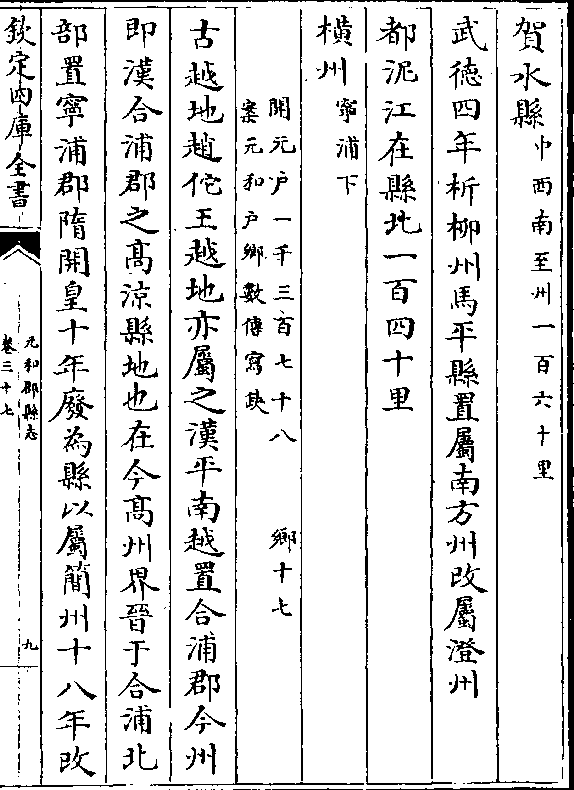 賀水縣中西南至州一百六十里
武徳四年析柳州馬平縣置屬南方州改屬澄州
都泥江在縣北一百四十里
橫州寧浦下
開元户一千三百七十八　鄉十七
案元和户鄉數傳寫缺
古越地趙佗王越地亦屬之漢平南越置合浦郡今州
即漢合浦郡之髙涼縣地也在今髙州界晉于合浦北
部置寧浦郡隋開皇十年廢為縣以屬簡州十八年改
欽定四庫全書
元和郡縣志
卷三十七
九